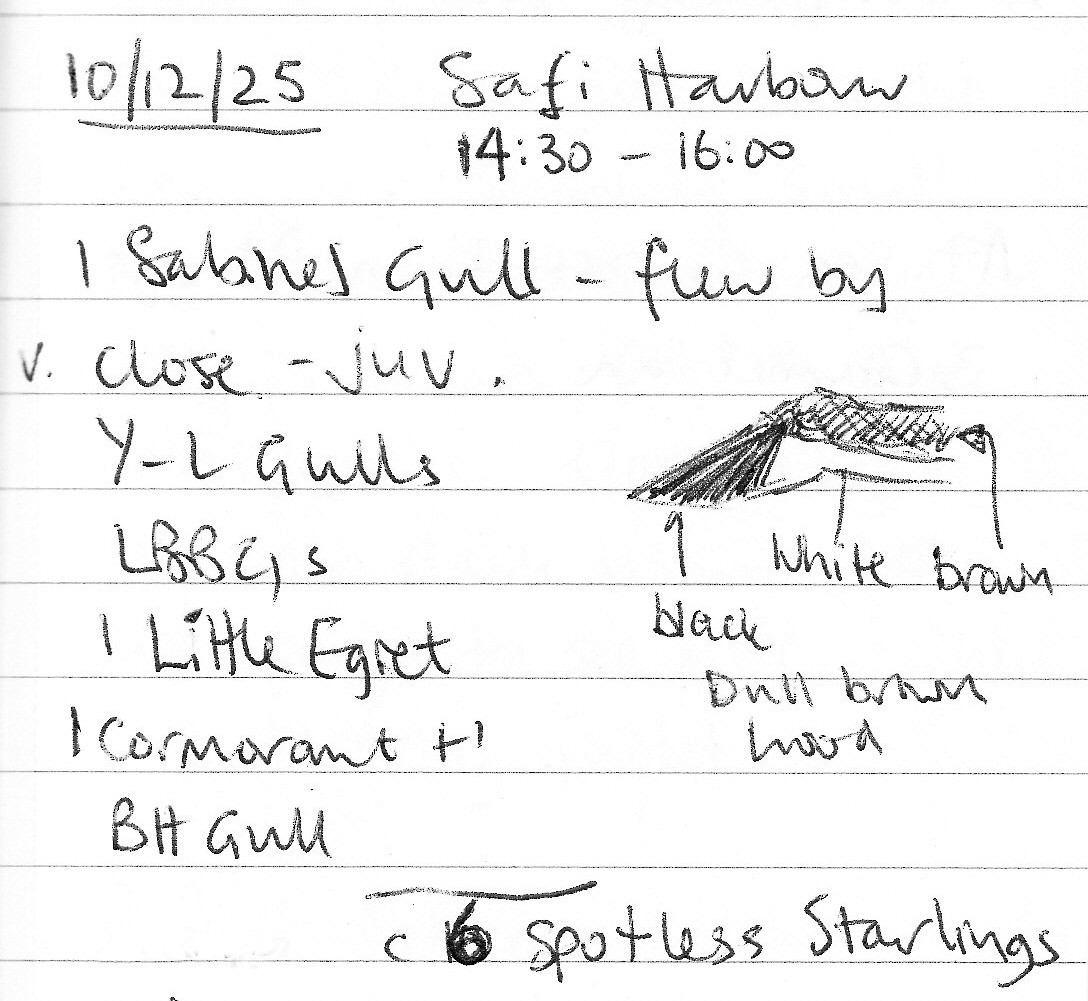 10/12/25 Safi Harbour
14:30 - 16:00
1 Sabines Gull - flew by
v. close - juv.
Y-L Gulls
LBBGs
White brown
black
1 Little Egret
Dull brown
hood
1 Cormorant +1
BH Gull
c 6 Spotless Starlings